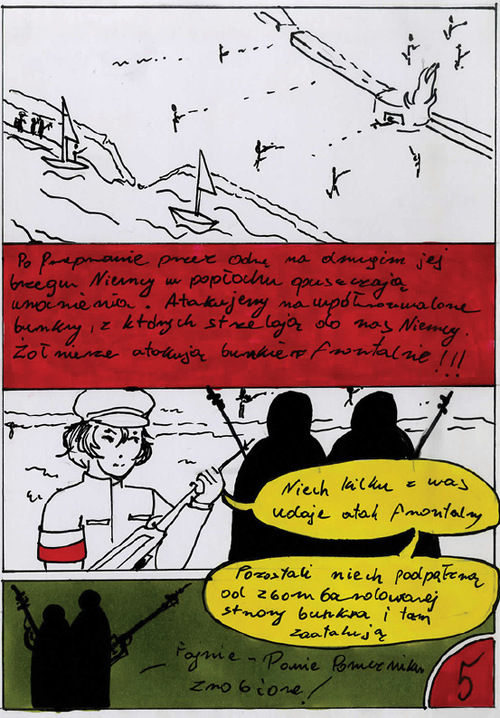 Po Przeprawie przez odrę na drugim jej
brzegu. Niemcy w popłochu opuszczają
umocnienia. Atakujemy na wpół rozwalone
bunkry, z których strzelają do nas Niemcy.
Żołnierze atakują bunkier frontalnie!!!
Niech kilku z was
udaje atak frontalny
Pozostali niech podpełzną
od zbombardowanej
strony bunkra i tam
zaatakują
– Fajnie – Panie Poruczniku
zrobione!
5